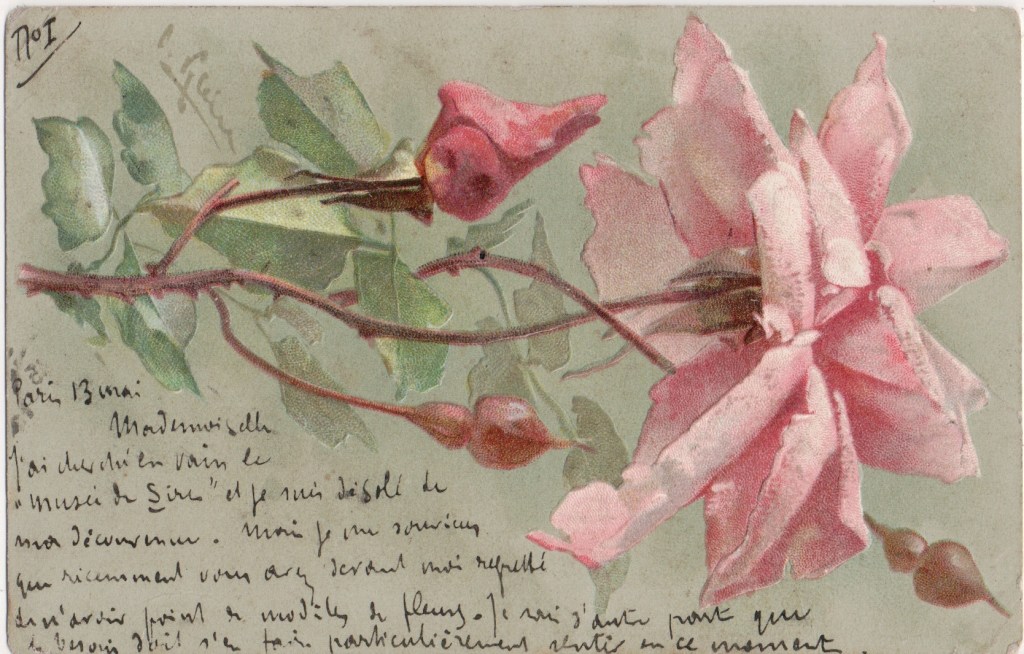 No I
C. Klein
Paris 13 mai
Mademoiselle
J'ai cherché en vain le
"musée de Sires" et je suis désolé de
ma déconvenue. Mais je me souviens
que récemment vous avez devant moi regretté
de n'avoir point de modèles de fleurs. Je sais d'autre part que
le besoin doit s'en faire particulièrement sentir en ce moment.